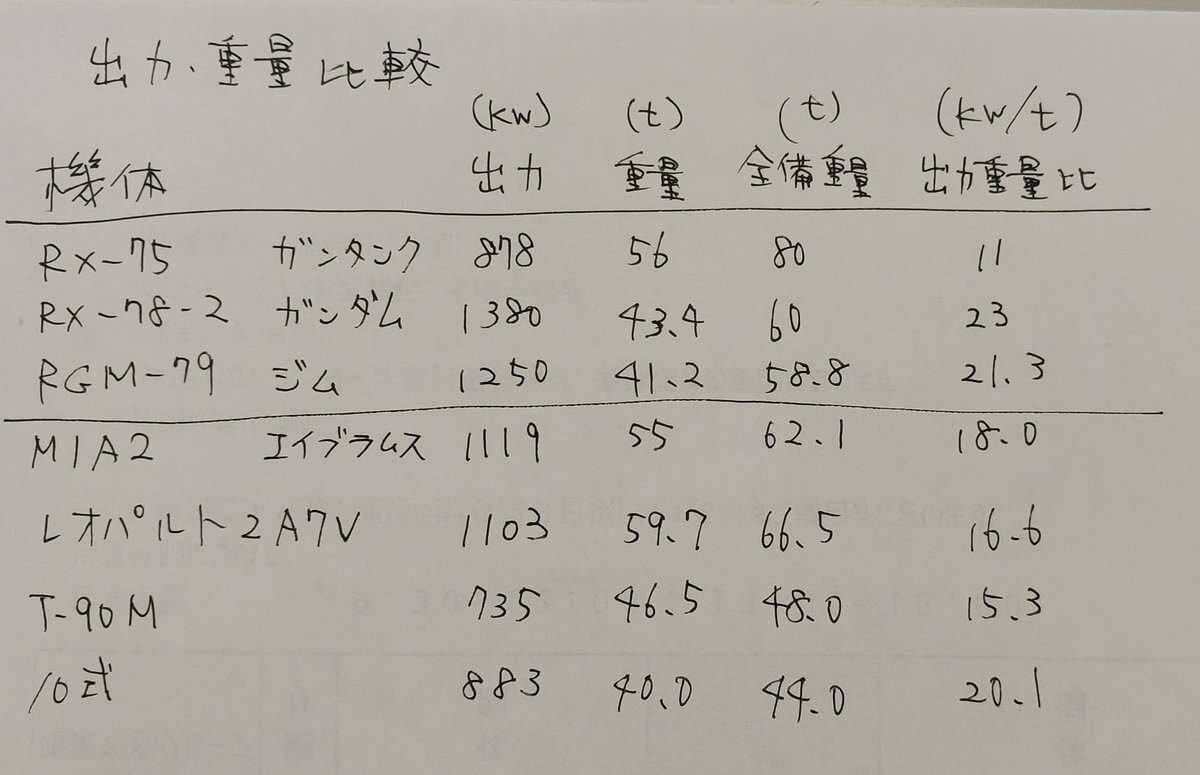 出力・重量比較
(kw) (t) (t) (kw/t)
機体 出力 重量 全備重量 出力重量比
RX-75 ガンタンク 878 56 80 11
RX-78-2 ガンダム 1380 43.4 60 23
RGM-79 ジム 1250 41.2 58.8 21.3
M1A2 エイブラムス 1119 55 62.1 18.0
レオパルト2A7V 1103 59.7 66.5 16.6
T-90M 735 46.5 48.0 15.3
10式 883 40.0 44.0 20.1